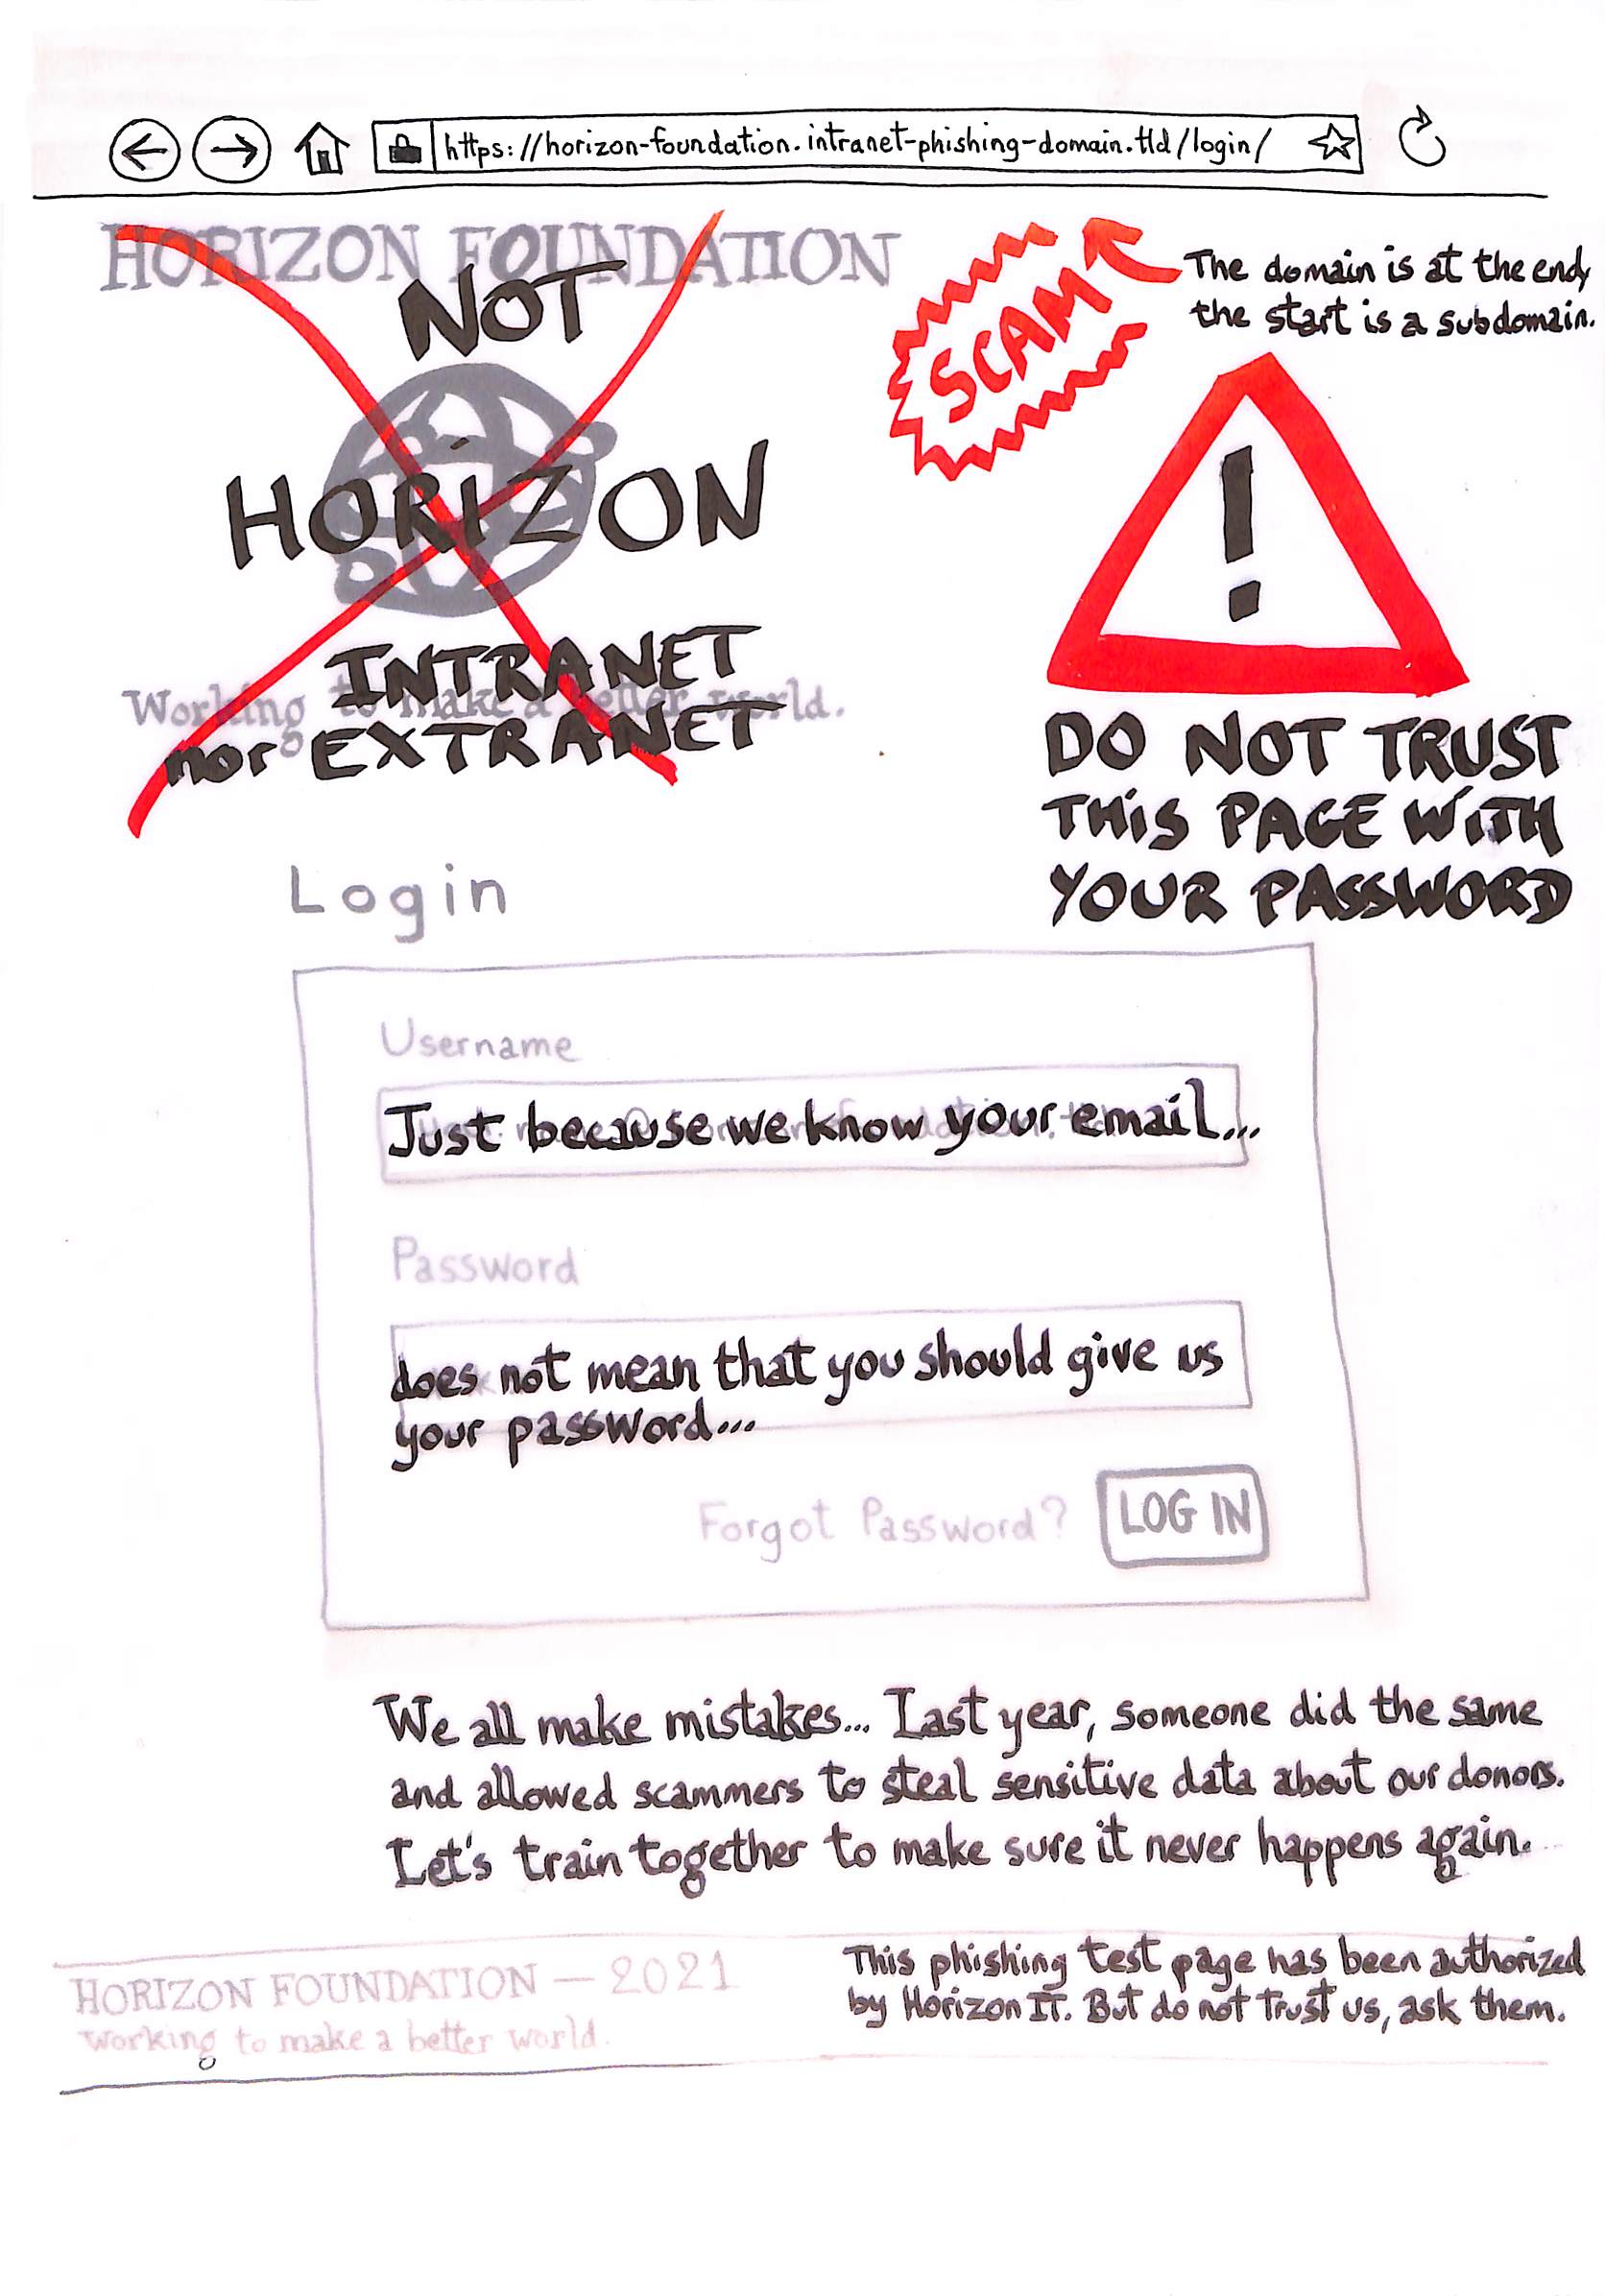 https://horizon-foundation.intranet-phishing-domain.tld/login/
HORIZON FOUNDATION
NOT
HORIZON
INTRANET
nor EXTRANET
Working to make a better world.
SCAM
The domain is at the end,
the start is a subdomain.
!
DO NOT TRUST
THIS PAGE WITH
YOUR PASSWORD
Login
Username
Just because we know your email...
Password
does not mean that you should give us
your password...
Forgot Password?
LOG IN
We all make mistakes... Last year, someone did the same
and allowed scammers to steal sensitive data about our donors.
Let's train together to make sure it never happens again.
HORIZON FOUNDATION — 2021
working to make a better world.
This phishing test page has been authorized
by Horizon IT. But do not trust us, ask them.